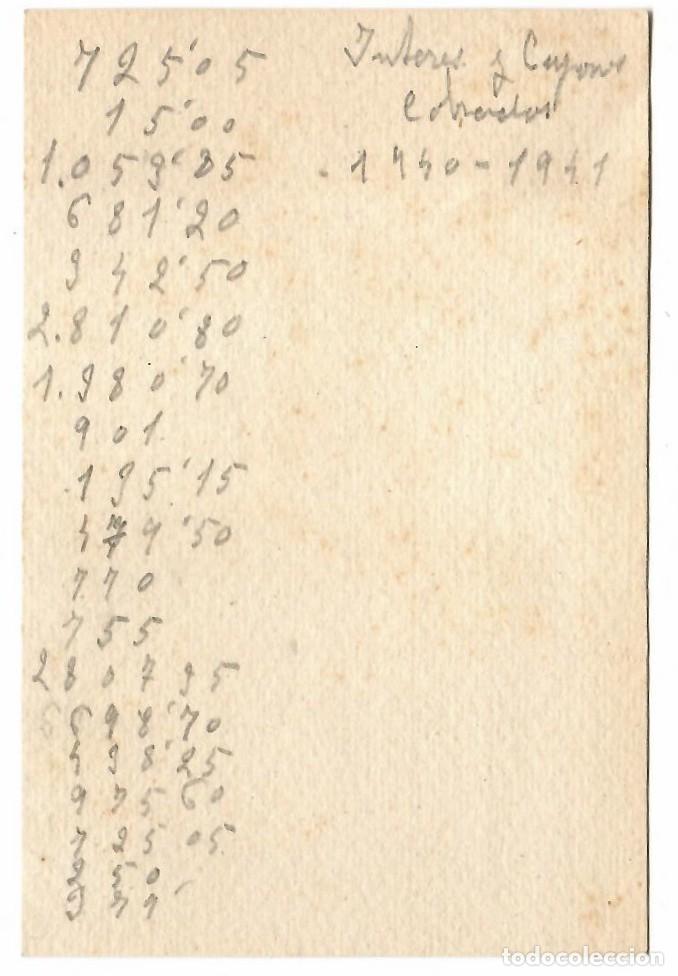 725'05
15'00
1.059'85
681'20
942'50
2.810'80
1.980'70
901
195'15
479'50
770
755
2807 95
698'70
598'25
975 60
725 05
250
979'
Interes y Cupones
Cobrados
1940-1941
todocoleccion